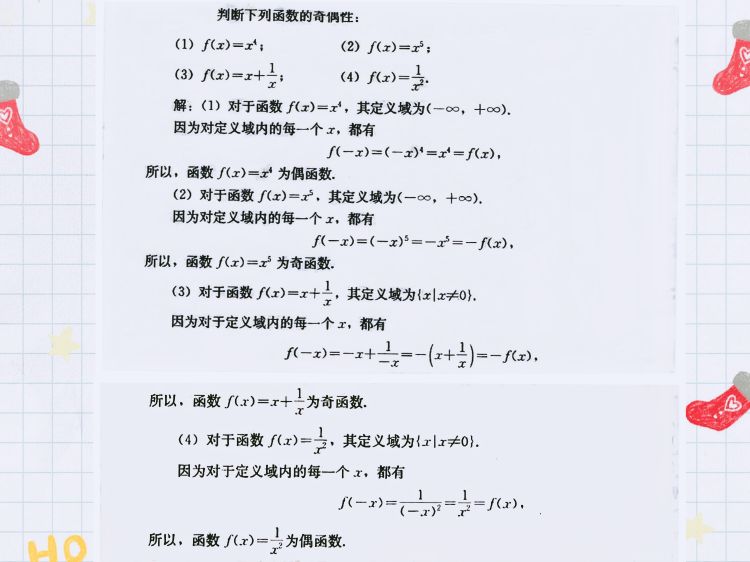 判断下列函数的奇偶性：
(1) f(x)=x⁴； (2) f(x)=x⁵；
(3) f(x)=x+1/x； (4) f(x)=1/x².
解：(1) 对于函数 f(x)=x⁴，其定义域为(−∞，+∞).
因为对定义域内的每一个 x，都有
f(−x)=(−x)⁴=x⁴=f(x)，
所以，函数 f(x)=x⁴ 为偶函数.
(2) 对于函数 f(x)=x⁵，其定义域为(−∞，+∞).
因为对定义域内的每一个 x，都有
f(−x)=(−x)⁵=−x⁵=−f(x)，
所以，函数 f(x)=x⁵ 为奇函数.
(3) 对于函数 f(x)=x+1/x，其定义域为{x|x≠0}.
因为对于定义域内的每一个 x，都有
f(−x)=−x+1/−x=−(x+1/x)=−f(x)，
所以，函数 f(x)=x+1/x为奇函数.
(4) 对于函数 f(x)=1/x²，其定义域为{x|x≠0}.
因为对于定义域内的每一个 x，都有
f(−x)=1/(−x)²=1/x²=f(x)，
所以，函数 f(x)=1/x²为偶函数.
HO